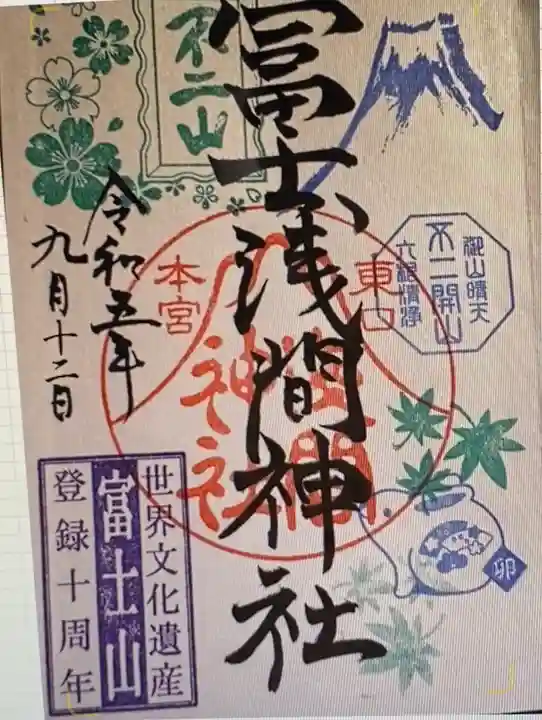 冨士浅間神社
不二山
東口
本宮
浅間
神社
令和五年
九月十二日
御山晴天
不二開山
六根清浄
卯
世界文化遺産
富士山
登録十周年